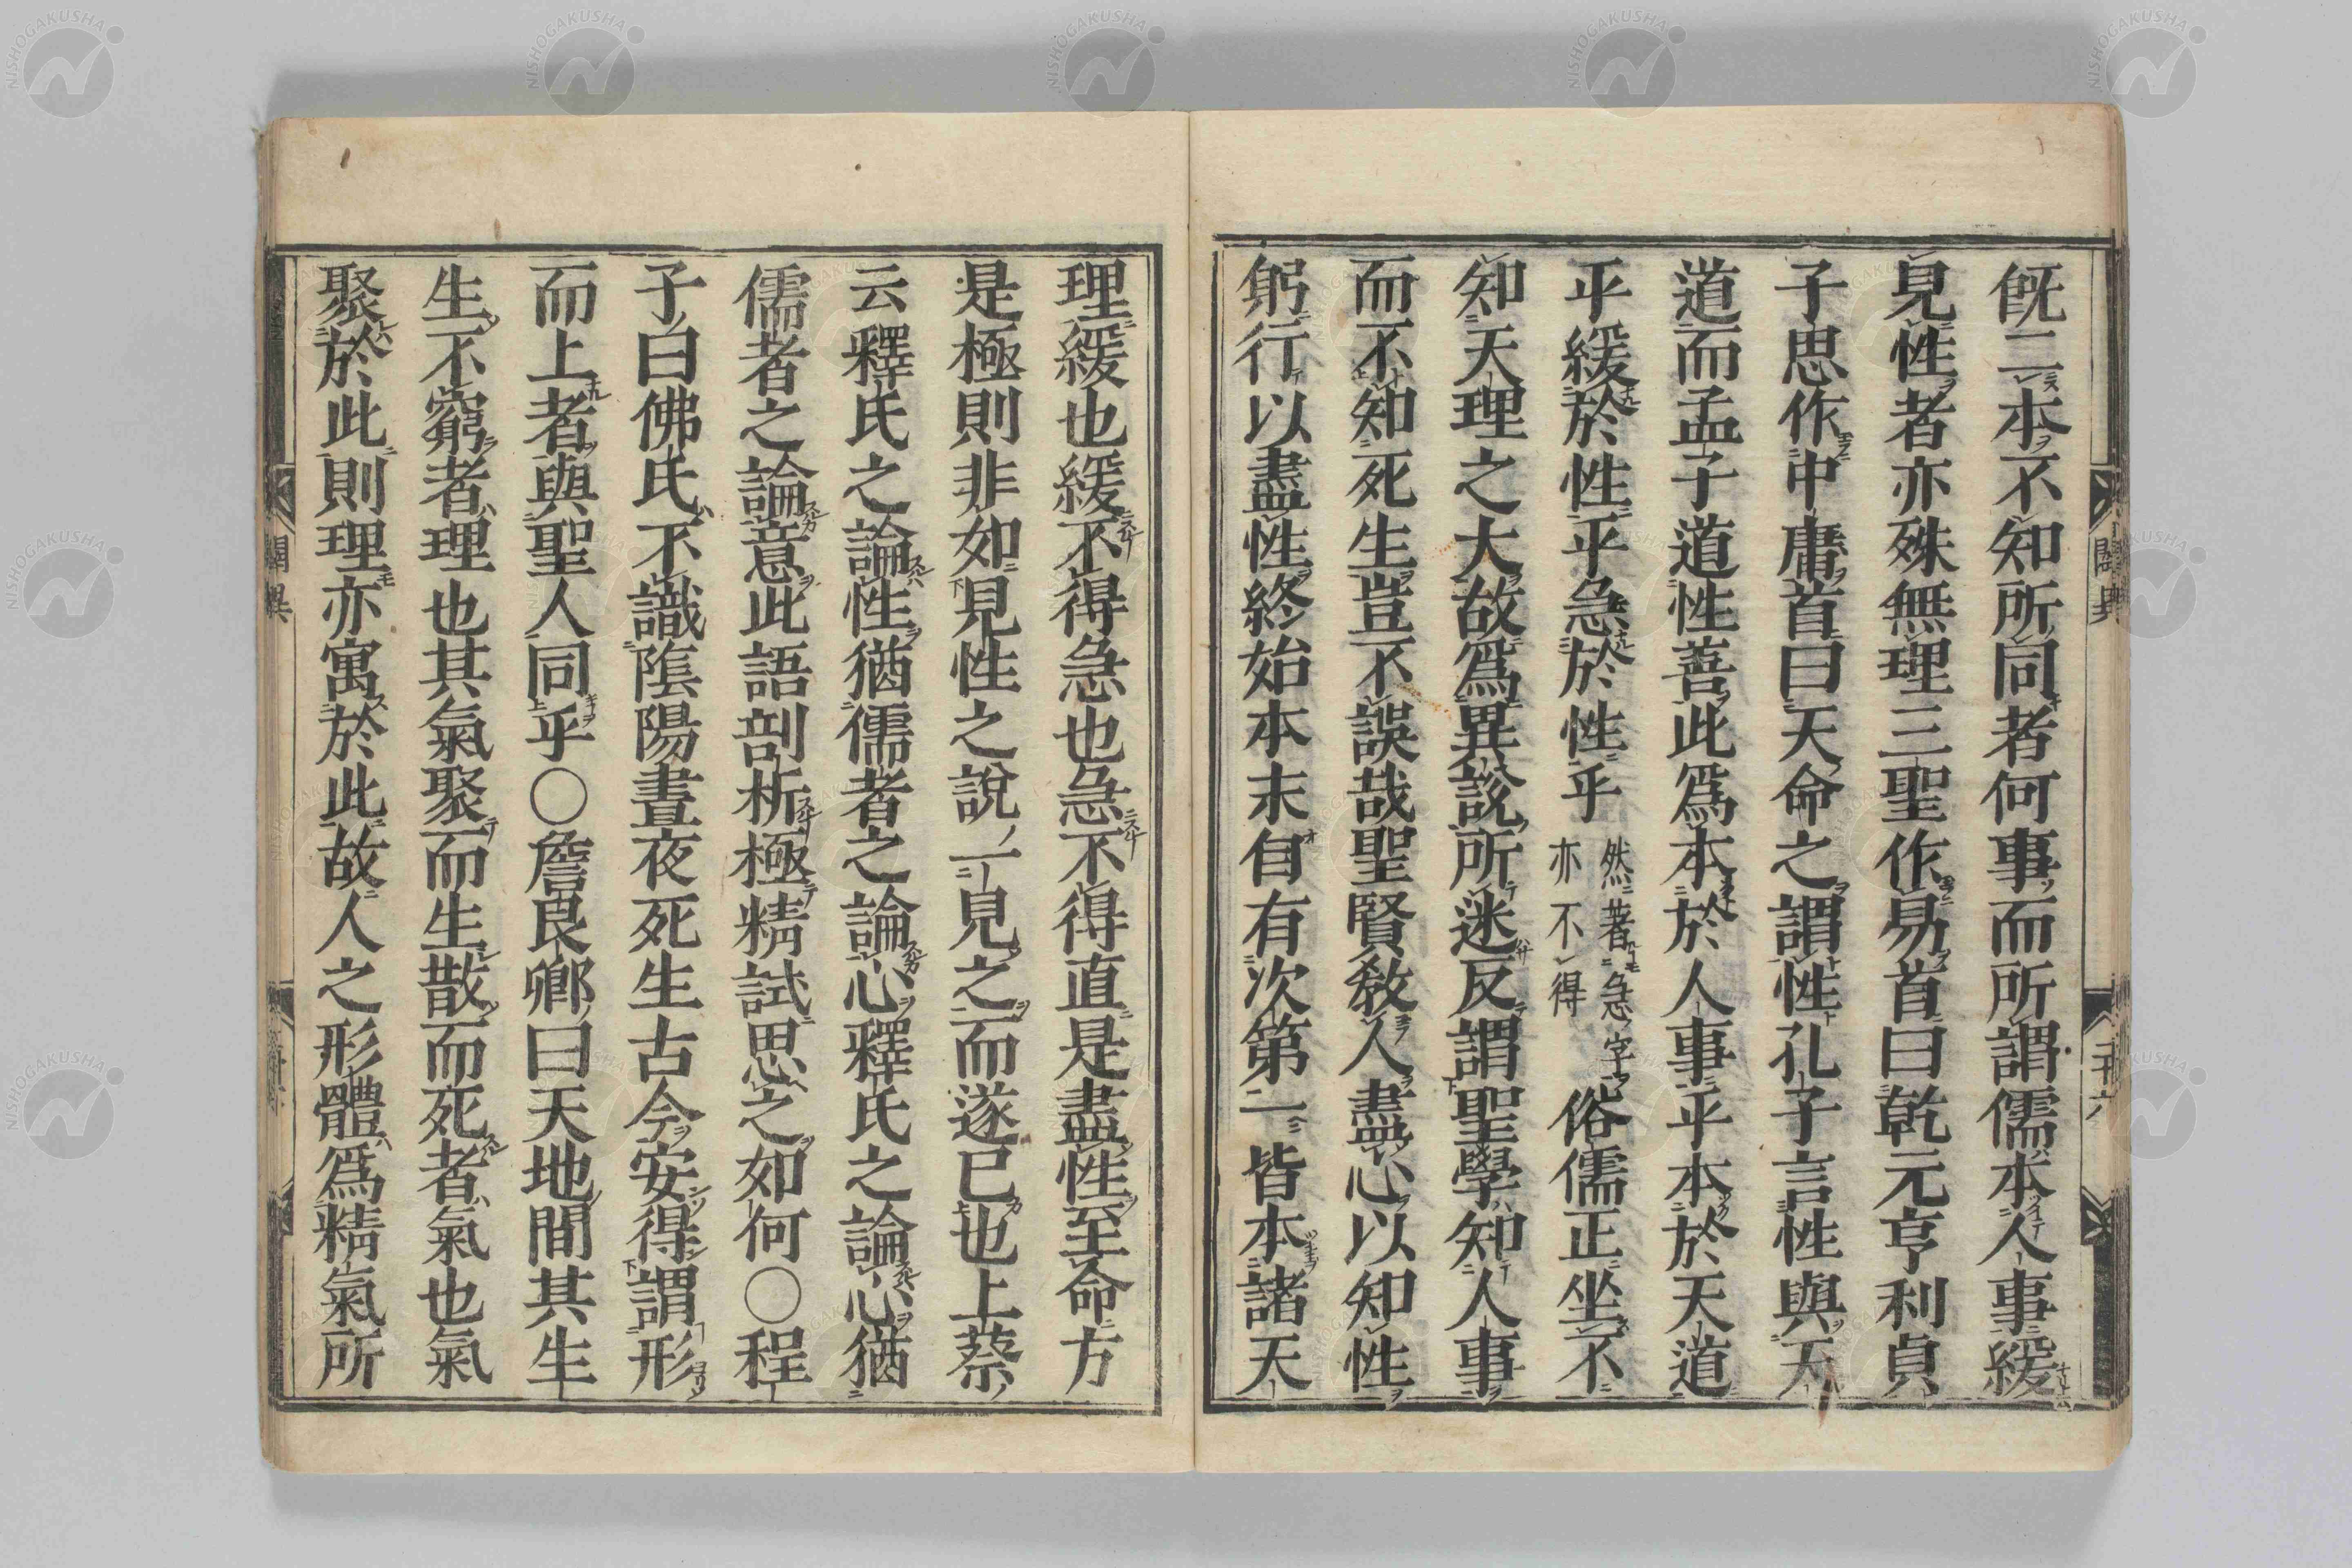 既二本不知所同者何事而所謂儒本人事緩
見性者亦殊無理三聖作易首曰乾元亨利貞
子思作中庸首曰天命之謂性孔子言性與天
道而孟子道性善此爲本於人事乎本於天道
乎緩於性乎急於性乎然著急字亦不得俗儒正坐不
知天理之大故爲異說所迷反謂聖學知人事
而不知死生豈不誤哉聖賢敎人盡心以知性
躬行以盡性終始本末自有次第一皆本諸天
理緩也緩不得急也急不得直是盡性至命方
是極則非如見性之說一見之而遂已也上蔡
云釋氏之論性猶儒者之論心釋氏之論心猶
儒者之論意此語剖析極精試思之如何〇程
子曰佛氏不識陰陽晝夜死生古今安得謂形
而上者與聖人同乎〇詹良卿曰天地間其生
生不窮者理也其氣聚而生散而死者氣也氣
聚於此則理亦寓於此故人之形體爲精氣所
NISHOGAKUSHA